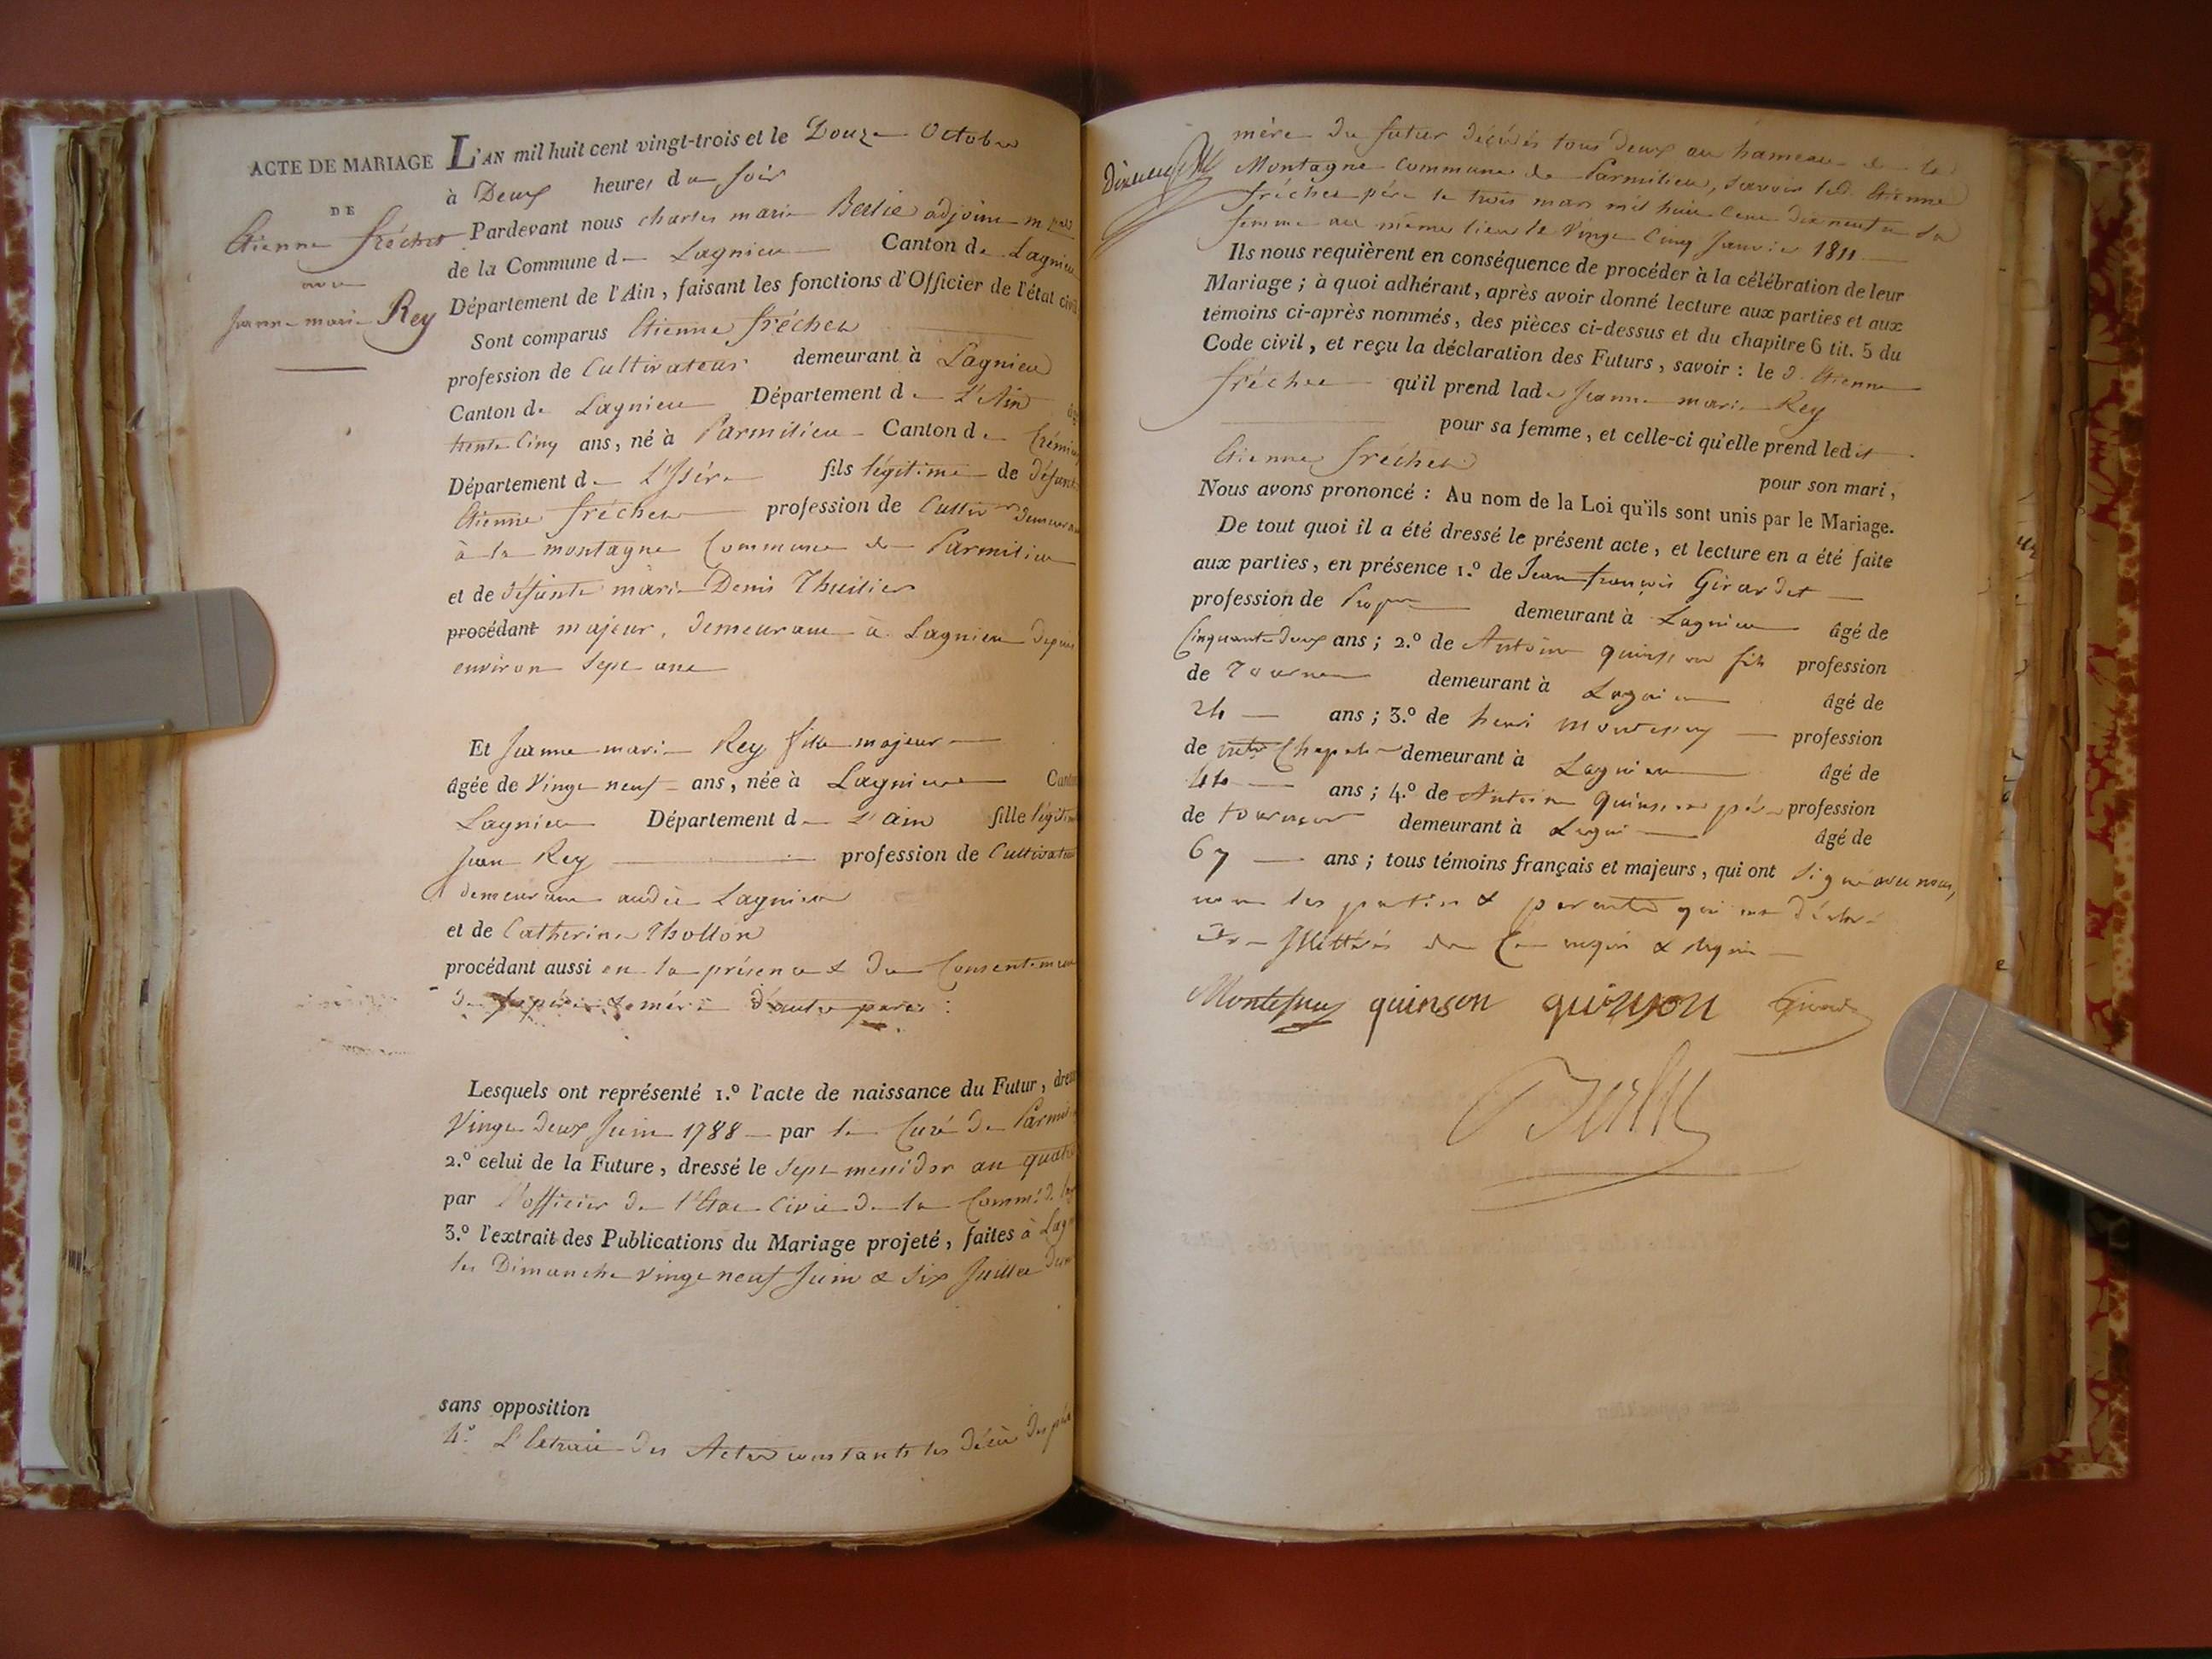 ACTE DE MARIAGE
DE
Etienne fréchet
avec
Jeanne marie Rey
L'AN mil huit cent vingt-trois et le Douze Octobre
à Deux heures du soir
Pardevant nous charles marie Berlie adjoint
de la Commune de Lagnieu Canton de Lagnieu
Département de l'Ain, faisant les fonctions d'Officier de l'état civil
Sont comparus Etienne fréchet
profession de Cultivateur demeurant à Lagnieu
Canton de Lagnieu Département de L'Ain âgé
trente Cinq ans, né à Parmilieu Canton de Crémieu
Département de L'Isére fils légitime de défunt
Etienne fréchet profession de Cultivr demeurant
à la montagne Commune de Parmilieu
et de défunte marie Denis Thuilier
procédant majeur, demeurant à Lagnieu depuis
environ Sept ans
Et Jeanne marie Rey fille majeure
âgée de Vingt neuf ans, née à Lagnieu Canton
Lagnieu Département de L'ain fille légitime
Jean Rey profession de Cultivateur
demeurant audit Lagnieu
et de Catherine Thollon
procédant aussi en la présence & du Consentement
de ses père & mère d'autre part :
Lesquels ont représenté 1.º l'acte de naissance du Futur, dressé
Vingt Deux Juin 1788 par le Curé de Parmi
2.º celui de la Future, dressé le Sept messidor an quatre
par l'officier de l'Etat Civil de la Comme. d. Lag
3.º l'extrait des Publications du Mariage projeté, faites à Lag
les Dimanche vingt neuf Juin & Six Juillet Dern
sans opposition
4.º L'Extrait des Actes constants les Décés des père
mère du futur décédés tous deux au hameau de la
Montagne Commune de Parmilieu, savoir led. Etienne
fréchet pére le trois mars mil huit Cent dix neuf & sa
femme au même lieu le Vingt Cinq Janvier 1811
Ils nous requièrent en conséquence de procéder à la célébration de leur
Mariage ; à quoi adhérant, après avoir donné lecture aux parties et aux
témoins ci-après nommés, des pièces ci-dessus et du chapitre 6 tit. 5 du
Code civil, et reçu la déclaration des Futurs, savoir : le d. Etienne
fréchet qu'il prend lade Jeanne marie Rey
pour sa femme, et celle-ci qu'elle prend ledit
Etienne fréchet
pour son mari,
Nous avons prononcé : Au nom de la Loi qu'ils sont unis par le Mariage.
De tout quoi il a été dressé le présent acte, et lecture en a été faite
aux parties, en présence 1.º de Jean françois Girardet
profession de Propre demeurant à Lagnieu âgé de
Cinquante deux ans ; 2.º de Antoine quinson fils profession
de Tourneur demeurant à Lagnieu âgé de
24 ans ; 3.º de henri montessuy profession
de Chapelier demeurant à Lagnieu âgé de
44 ans ; 4.º de Antoine Quinson pére profession
de tourneur demeurant à Lagnieu âgé de
67 ans ; tous témoins français et majeurs, qui ont signé avec nous,
non les parties & parents qui ont déclaré
être Illettérés de Ce enquis & requis
Montessuy quinson quinson Girardet
Berlie